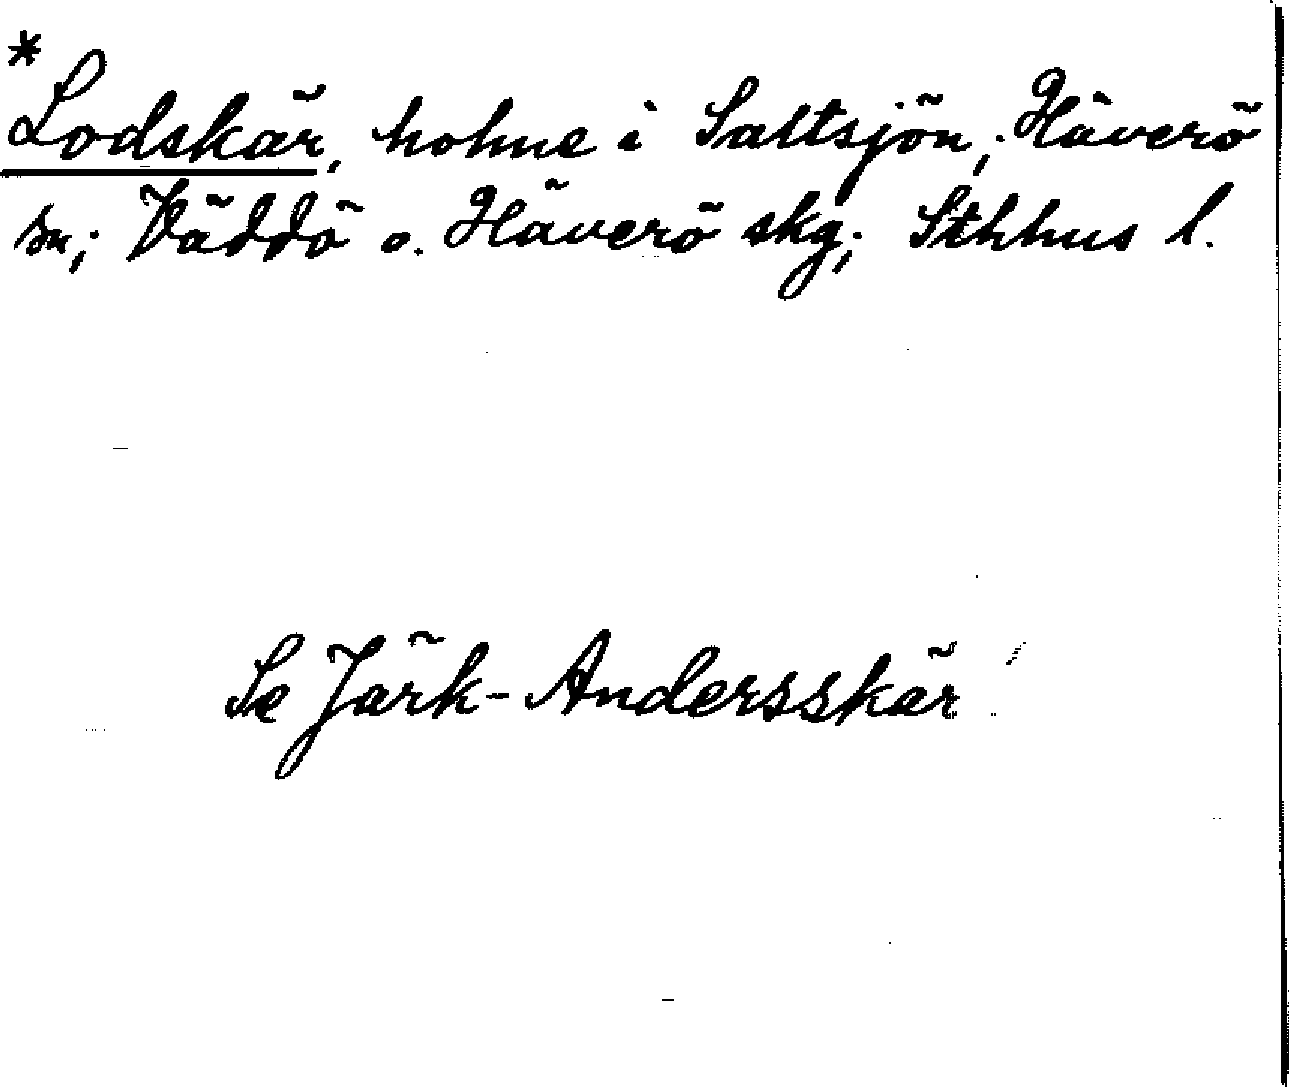 *Lodskär, holme i Saltsjön; Häverö
sn; Väddö o. Häverö skg; Sthhus l.
Se Järk-Andersskär